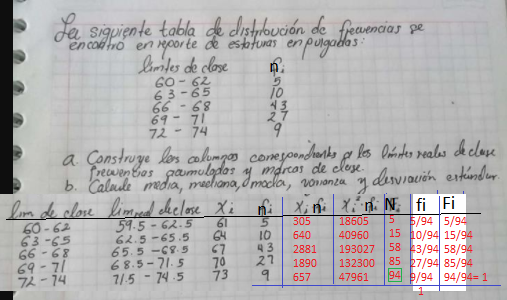 La siguiente tabla de distribución de frecuencias se
encontro en reporte de estaturas en pulgadas:
límites de clase ni
60 - 62 5
63 - 65 10
66 - 68 43
69 - 71 27
72 - 74 9
a. Construye las columnas correspondientes a los límites reales de clase
frecuencias acumuladas y marcas de clase.
b. Calcule media, mediana, moda, varianza y desviación estándar.
lim de clase lim real de clase Xi ni Xi ni Xi² ni Ni fi Fi
60-62 59.5 - 62.5 61 5 305 18605 5 5/94 5/94
63-65 62.5 - 65.5 64 10 640 40960 15 10/94 15/94
66-68 65.5 - 68.5 67 43 2881 193027 58 43/94 58/94
69-71 68.5 - 71.5 70 27 1890 132300 85 27/94 85/94
72-74 71.5 - 74.5 73 9 657 47961 94 9/94 94/94= 1
1